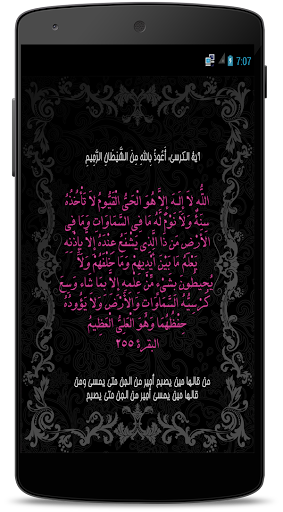 7:07
آية الكرسى: أَعُوذُ بِاللهِ مِنَ الشَّيْطَانِ الرَّجِيمِ
اللَّهُ لاَ إِلَـهَ إِلاَّ هُوَ الْحَيُّ الْقَيُّومُ لاَ تَأْخُذُهُ
سِنَةٌ وَلاَ نَوْمٌ لَّهُ مَا فِي السَّمَاوَاتِ وَمَا فِي
الأَرْضِ مَن ذَا الَّذِي يَشْفَعُ عِنْدَهُ إِلاَّ بِإِذْنِهِ
يَعْلَمُ مَا بَيْنَ أَيْدِيهِمْ وَمَا خَلْفَهُمْ وَلاَ
يُحِيطُونَ بِشَيْءٍ مِّنْ عِلْمِهِ إِلاَّ بِمَا شَاء وَسِعَ
كُرْسِيُّهُ السَّمَاوَاتِ وَالأَرْضَ وَلاَ يَؤُودُهُ
حِفْظُهُمَا وَهُوَ الْعَلِيُّ الْعَظِيمُ
البقرة ٢٥٥
من قالها حين يصبح أجير من الجن حتى يمسى ومن
قالها حين يمسى أجير من الجن حتى يصبح